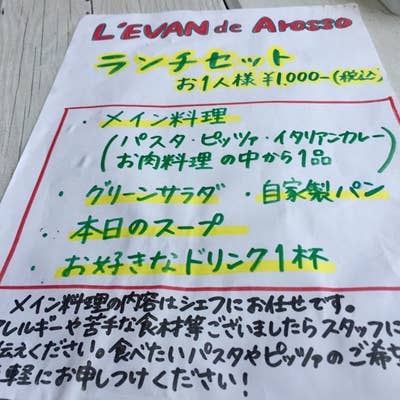 L'EVAN de Arosso
ランチセット
お1人様¥1,000-(税込)
・メイン料理
(パスタ・ピッツァ・イタリアンカレー
お肉料理の中から1品)
・グリーンサラダ ・自家製パン
・本日のスープ
・お好きなドリンク1杯
メイン料理の内容はシェフにお任せです。
アレルギーや苦手な食材等ございましたらスタッフに
伝えください。食べたいパスタやピッツァのご希
軽にお申しつけください!